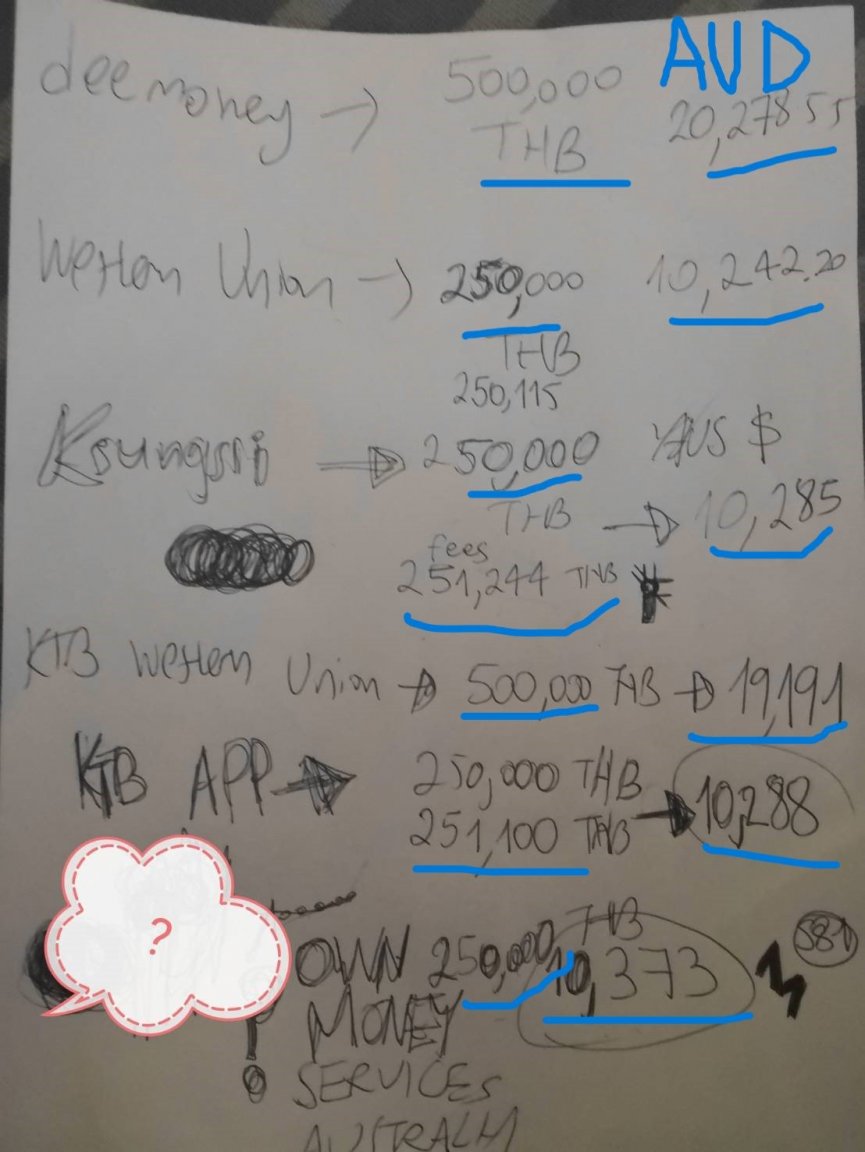 AUD
deemoney → 500,000 20,278 55
THB
Western Union → 250,000 10,242.20
THB
250,115
Krungssi ⇒ 250,000 AUS $
THB → 10,285
fees
251,244 THB
KTB Western Union → 500,000 THB → 19,191
KTB APP → 250,000 THB
251,100 THB → 10,288
?
THB
OWN 250,000 10,373
MONEY
SERVICES
AUSTRALI